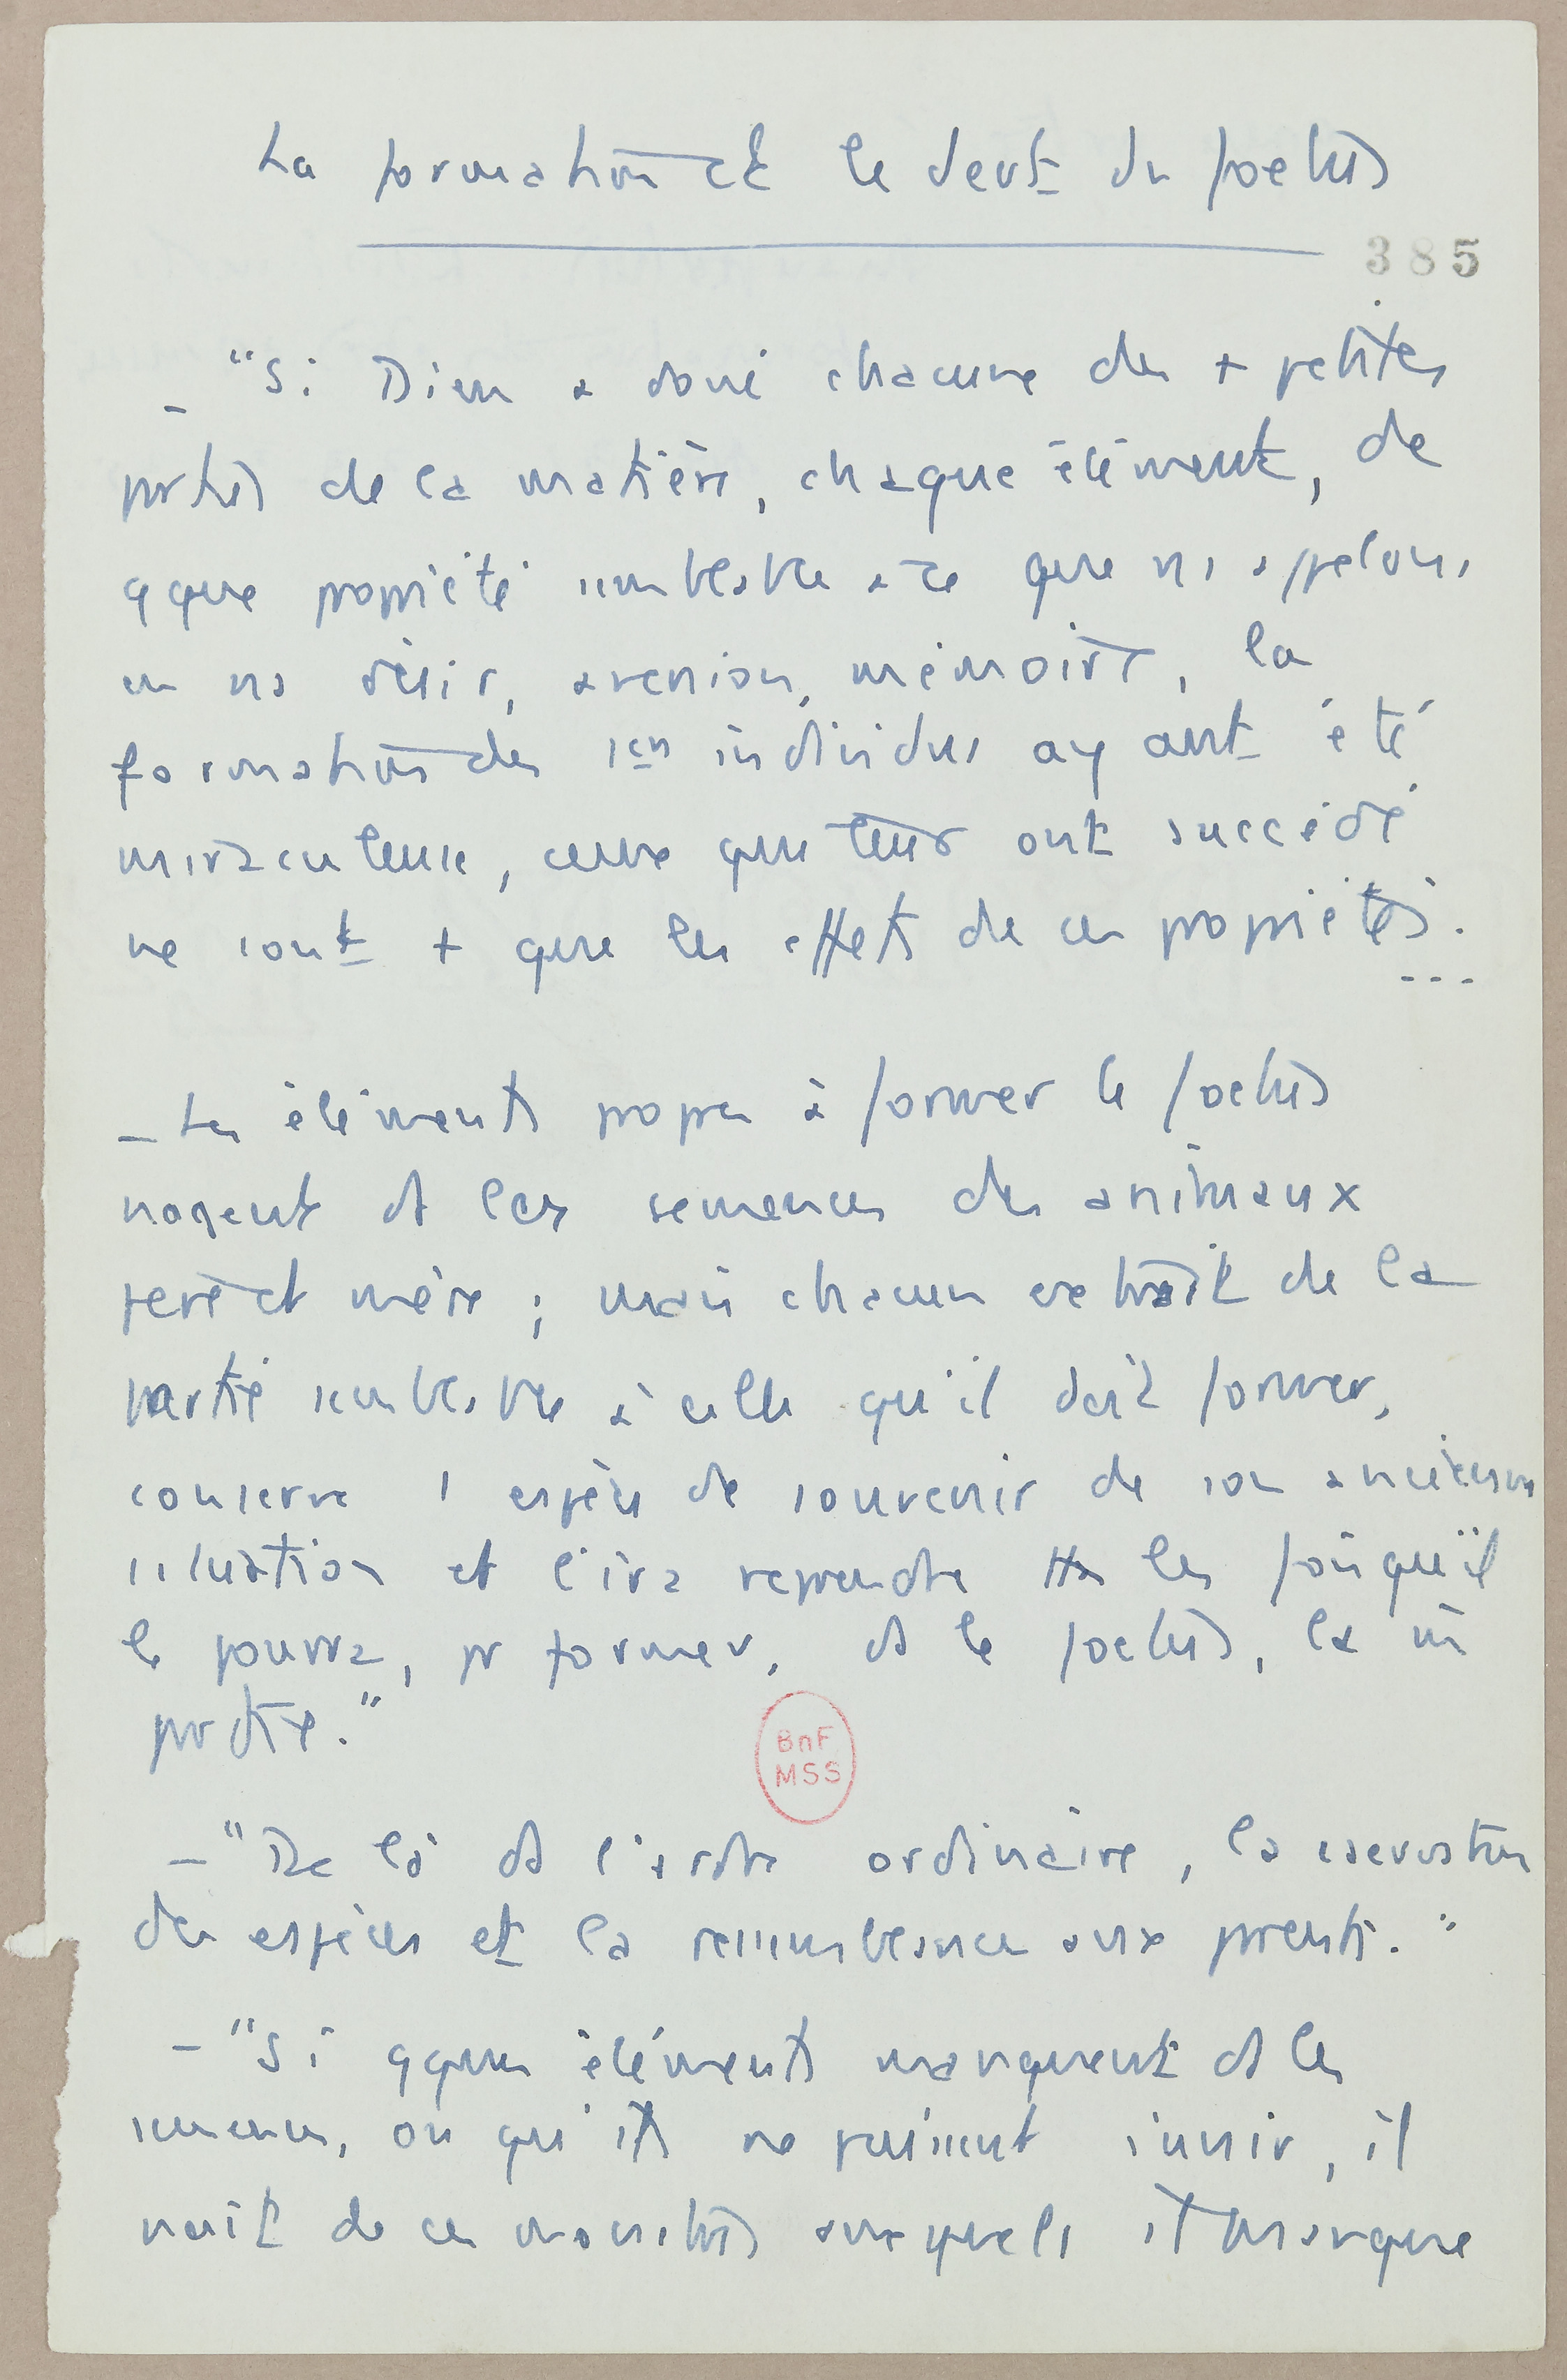 La formation et le devt du foetus
385
- "Si Dieu a doué chacune des + petites
prties de la matière, chaque élément, de
qque propriété semblable à ce que ns appelons
en ns désir, aversion, mémoire, la
formation des 1ers individus ayant été
miraculeuse, ceux qui leur ont succédé
ne sont + que les effets de ces propriétés.
---
- Les éléments propres à former le foetus
nagent ds les semences des animaux
père et mère ; mais chacun extrait de la
partie semblable à celle qu'il doit former,
conserve 1 espèce de souvenir de son ancienne
situation et l'ira reprendre ttes les fois qu'il
le pourra, pr former, ds le foetus, la m̄
prtie."
BnF
MSS
- "De là ds l'ordre ordinaire, la conservation
des espèces et la ressemblance aux prents."
- "Si qques éléments manquent ds les
semences, ou qu'ils ne puissent s'unir, il
nait de ces monstres auxquels il manque